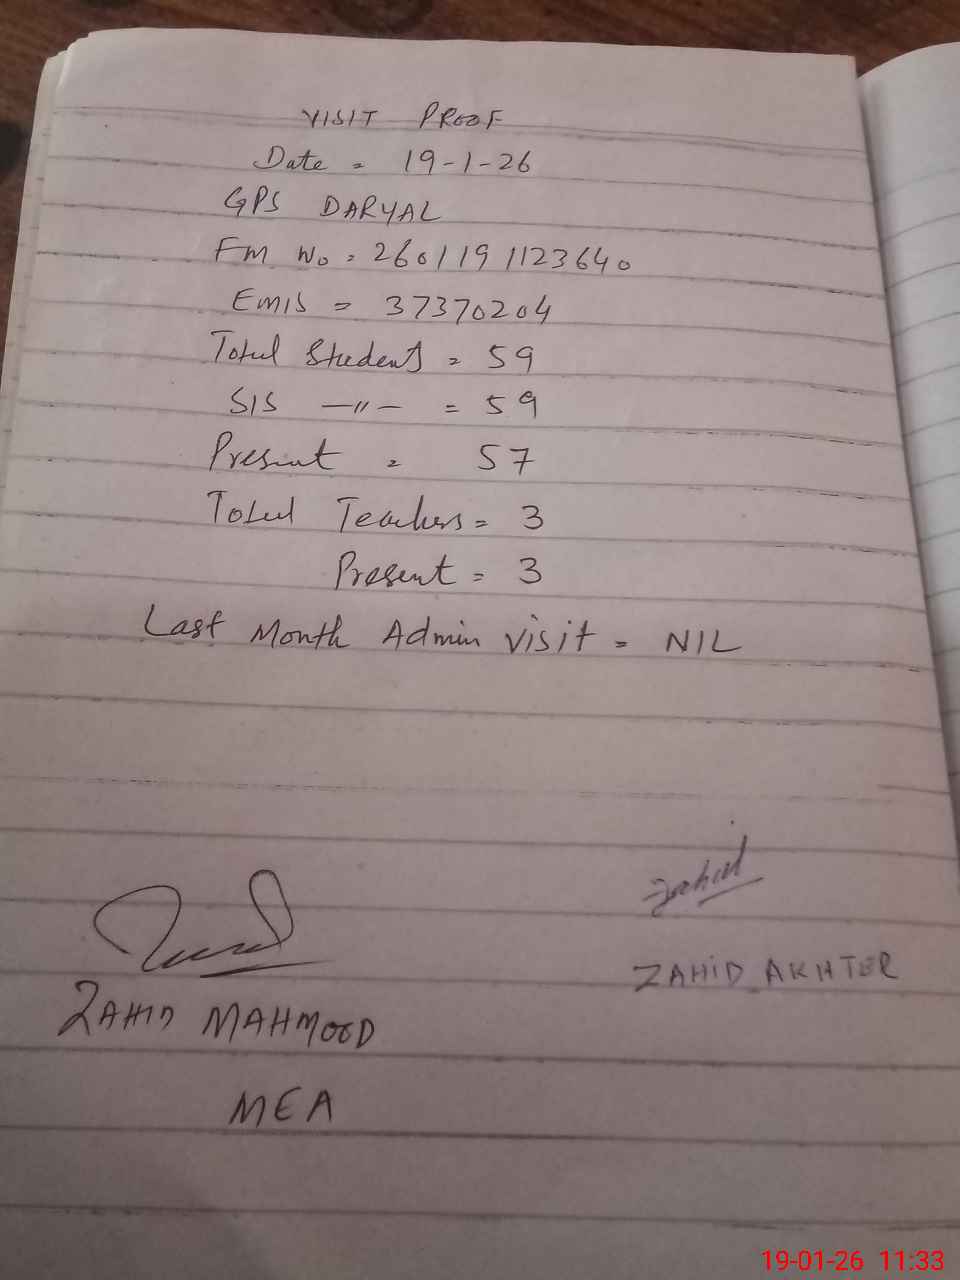 VISIT PROOF
Date = 19-1-26
GPS DARYAL
Fm No = 2601191123640
EMIS = 37370204
Total Students = 59
SIS —〃— = 59
Present = 57
Total Teachers = 3
Present = 3
Last Month Admin visit = NIL
Zahid
ZAHID AKHTER
ZAHID MAHMOOD
MEA
19-01-26 11:33